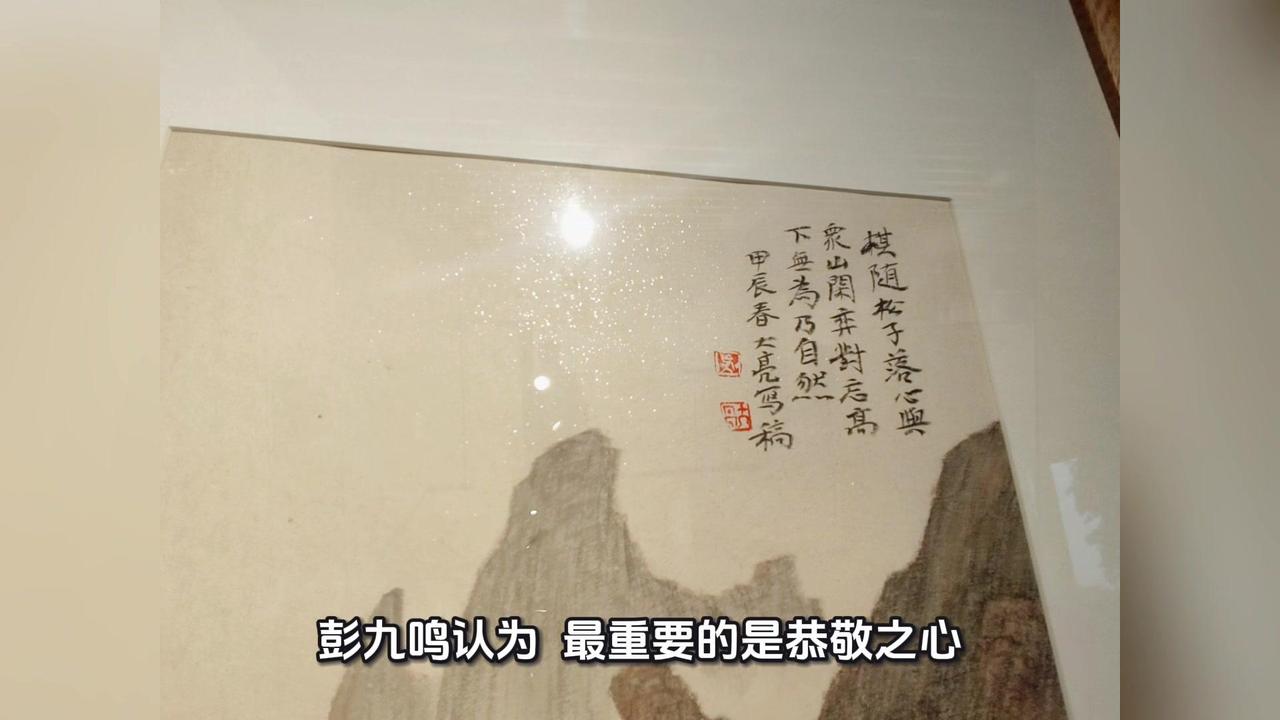 棋随松子落心與
衆山閑弈對忘高
下無為乃自然
甲辰春大亮写稿
彭九鸣认为 最重要的是恭敬之心